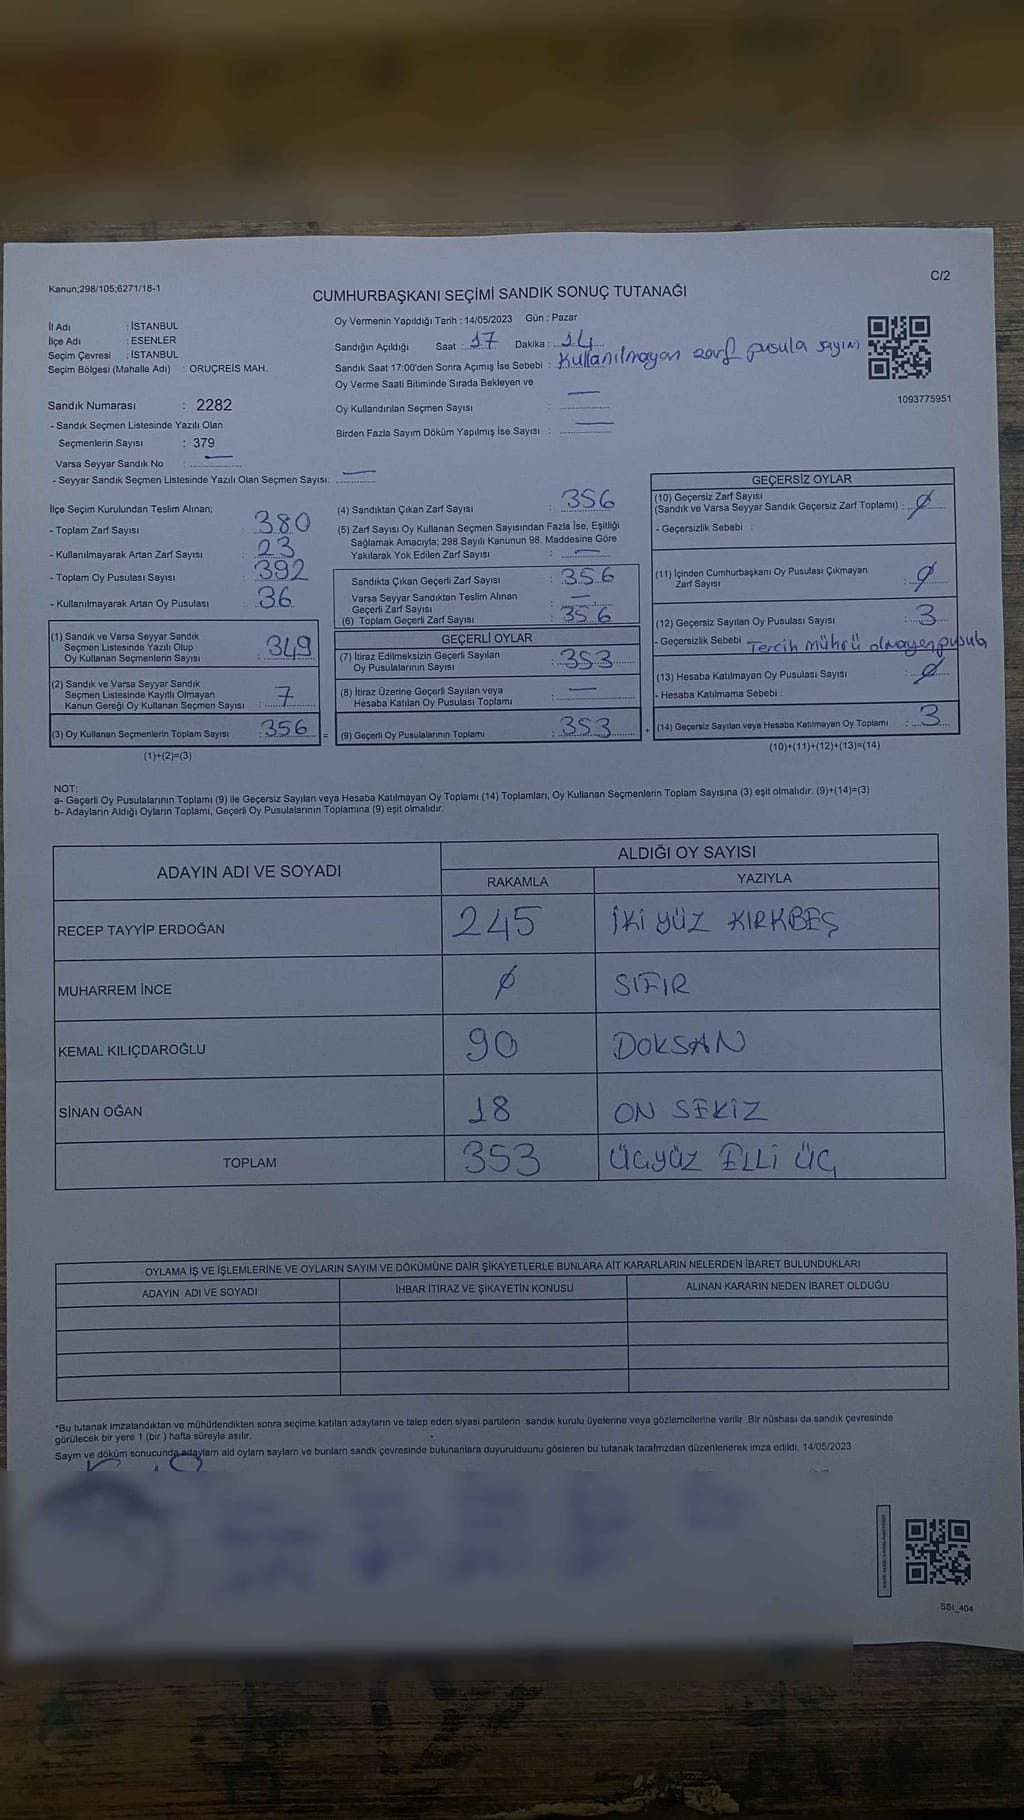 C/2
Kanun;298/105;6271/18-1
CUMHURBAŞKANI SEÇİMİ SANDIK SONUÇ TUTANAĞI
İl Adı : İSTANBUL
İlçe Adı : ESENLER
Seçim Çevresi : İSTANBUL
Seçim Bölgesi (Mahalle Adı) : ORUÇREİS MAH.
Sandık Numarası : 2282
- Sandık Seçmen Listesinde Yazılı Olan
Seçmenlerin Sayısı : 379
Varsa Seyyar Sandık No : —
- Seyyar Sandık Seçmen Listesinde Yazılı Olan Seçmen Sayısı: —
Oy Vermenin Yapıldığı Tarih : 14/05/2023 Gün : Pazar
Sandığın Açıldığı Saat : 17 Dakika : 14
Sandık Saat 17:00'den Sonra Açımış İse Sebebi : Kullanılmayan zarf pusula sayım
Oy Verme Saati Bitiminde Sırada Bekleyen ve
Oy Kullandırılan Seçmen Sayısı : —
Birden Fazla Sayım Döküm Yapılmış İse Sayısı : —
1093775951
İlçe Seçim Kurulundan Teslim Alınan;
- Toplam Zarf Sayısı : 380
- Kullanılmayarak Artan Zarf Sayısı : 23
- Toplam Oy Pusulası Sayısı : 392
- Kullanılmayarak Artan Oy Pusulası : 36
(1) Sandık ve Varsa Seyyar Sandık
Seçmen Listesinde Yazılı Olup
Oy Kullanan Seçmenlerin Sayısı : 349
(2) Sandık ve Varsa Seyyar Sandık
Seçmen Listesinde Kayıtlı Olmayan
Kanun Gereği Oy Kullanan Seçmen Sayısı : 7
(3) Oy Kullanan Seçmenlerin Toplam Sayısı : 356 =
(1)+(2)=(3)
(4) Sandıktan Çıkan Zarf Sayısı : 356
(5) Zarf Sayısı Oy Kullanan Seçmen Sayısından Fazla İse, Eşitliği
Sağlamak Amacıyla; 298 Sayılı Kanunun 98. Maddesine Göre
Yakılarak Yok Edilen Zarf Sayısı : —
Sandıkta Çıkan Geçerli Zarf Sayısı : 356
Varsa Seyyar Sandıktan Teslim Alınan
Geçerli Zarf Sayısı : —
(6) Toplam Geçerli Zarf Sayısı : 356
GEÇERLİ OYLAR
(7) İtiraz Edilmeksizin Geçerli Sayılan
Oy Pusulalarının Sayısı : 353
(8) İtiraz Üzerine Geçerli Sayılan veya
Hesaba Katılan Oy Pusulası Toplamı : —
(9) Geçerli Oy Pusulalarının Toplamı : 353 +
GEÇERSİZ OYLAR
(10) Geçersiz Zarf Sayısı
(Sandık ve Varsa Seyyar Sandık Geçersiz Zarf Toplamı) : Ø
- Geçersizlik Sebebi :
(11) İçinden Cumhurbaşkanı Oy Pusulası Çıkmayan
Zarf Sayısı : Ø
(12) Geçersiz Sayılan Oy Pusulası Sayısı : 3
- Geçersizlik Sebebi : Tercih mührü olmayan pusula
(13) Hesaba Katılmayan Oy Pusulası Sayısı : Ø
- Hesaba Katılmama Sebebi :
(14) Geçersiz Sayılan veya Hesaba Katılmayan Oy Toplamı : 3
(10)+(11)+(12)+(13)=(14)
NOT:
a- Geçerli Oy Pusulalarının Toplamı (9) ile Geçersiz Sayılan veya Hesaba Katılmayan Oy Toplamı (14) Toplamları, Oy Kullanan Seçmenlerin Toplam Sayısına (3) eşit olmalıdır. (9)+(14)=(3)
b- Adayların Aldığı Oyların Toplamı, Geçerli Oy Pusulalarının Toplamına (9) eşit olmalıdır.
ADAYIN ADI VE SOYADI ALDIĞI OY SAYISI
RAKAMLA YAZIYLA
RECEP TAYYİP ERDOĞAN 245 İKİ YÜZ KIRKBEŞ
MUHARREM İNCE Ø SIFIR
KEMAL KILIÇDAROĞLU 90 DOKSAN
SİNAN OĞAN 18 ON SEKİZ
TOPLAM 353 ÜÇYÜZ ELLİ ÜÇ
OYLAMA İŞ VE İŞLEMLERİNE VE OYLARIN SAYIM VE DÖKÜMÜNE DAİR ŞİKAYETLERLE BUNLARA AİT KARARLARIN NELERDEN İBARET BULUNDUKLARI
ADAYIN ADI VE SOYADI İHBAR İTİRAZ VE ŞİKAYETİN KONUSU ALINAN KARARIN NEDEN İBARET OLDUĞU
*Bu tutanak imzalandıktan ve mühürlendikten sonra seçime katılan adayların ve talep eden siyasi partilerin sandık kurulu üyelerine veya gözlemcilerine verilir .Bir nüshası da sandık çevresinde
görülecek bir yere 1 (bir ) hafta süreyle asılır.
Saym ve döküm sonucunda adaylarn ald oylarn saylarn ve bunlarn sandk çevresinde bulunanlara duyurulduunu gösteren bu tutanak tarafmzdan düzenlenerek imza edildi. 14/05/2023
SSİ_404